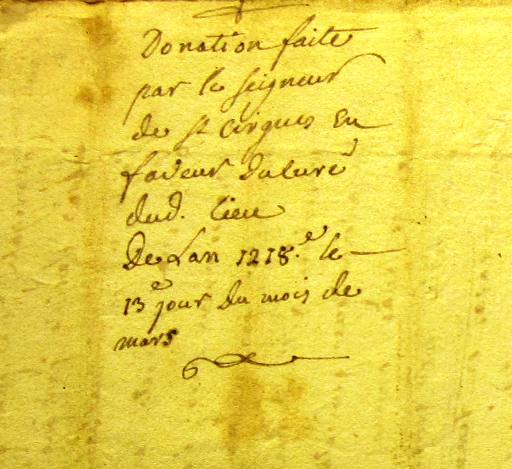 Donation faite
par le seigneur
de st Cirgues En
faveur Du Curé
dud. lieu
De Lan 1218.e le
13e jour Du mois de
mars